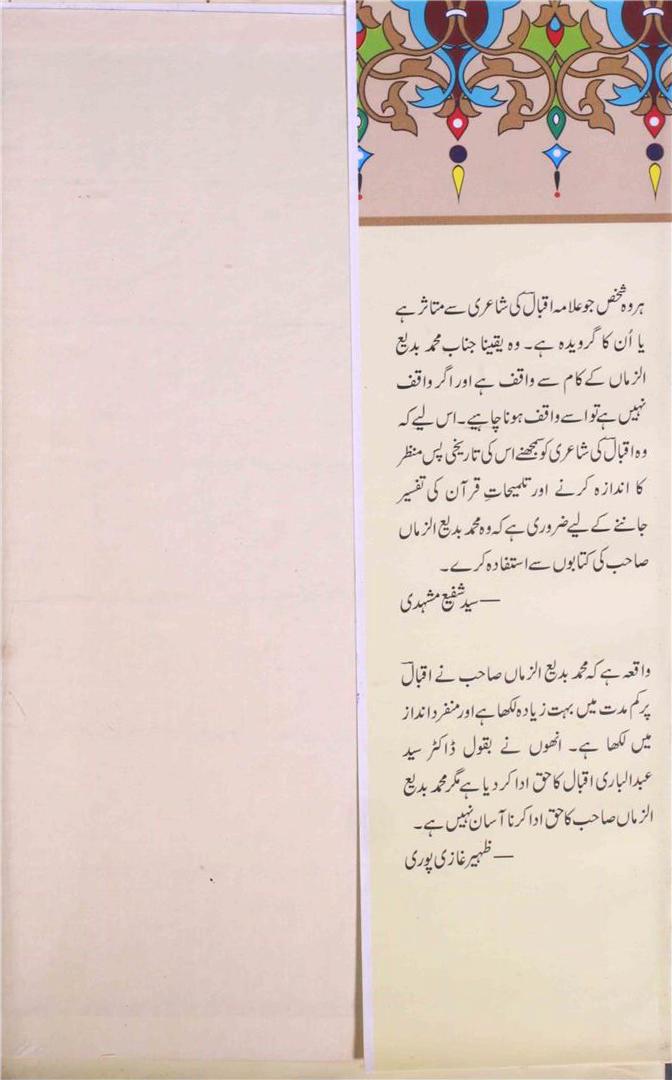 ہر وہ شخص جو علامہ اقبالؔ کی شاعری سے متاثر ہے
یا اُن کا گرویدہ ہے۔ وہ یقینا جناب محمد بدیع
الزماں کے کام سے واقف ہے اور اگر واقف
نہیں ہے تو اسے واقف ہونا چاہیے۔ اس لیے کہ
وہ اقبالؔ کی شاعری کو سمجھنے اس کی تاریخی پس منظر
کا اندازہ کرنے اور تلمیحاتِ قرآن کی تفسیر
جاننے کے لیے ضروری ہے کہ وہ محمد بدیع الزماں
صاحب کی کتابوں سے استفادہ کرے۔
— سید شفیع مشہدی
واقعہ ہے کہ محمد بدیع الزماں صاحب نے اقبالؔ
پر کم مدت میں بہت زیادہ لکھا ہے اور منفرد انداز
میں لکھا ہے۔ انھوں نے بقول ڈاکٹر سید
عبدالباری اقبال کا حق ادا کر دیا ہے مگر محمد بدیع
الزماں صاحب کا حق ادا کرنا آسان نہیں ہے۔
— ظہیر غازی پوری